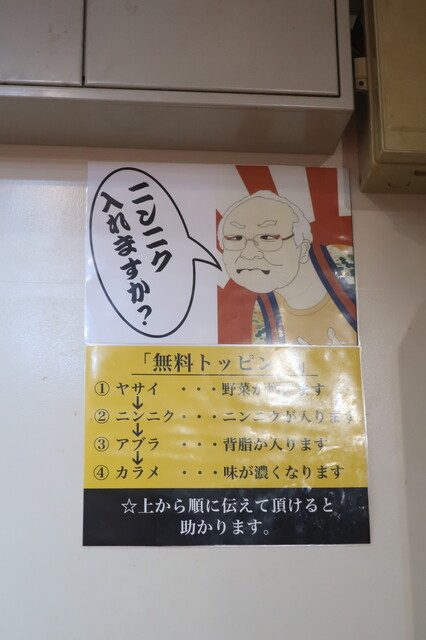 ニンニク
入れますか?
「無料トッピング」
① ヤサイ ・・・野菜が増えます
↓
② ニンニク・・・ニンニクが入ります
↓
③ アブラ ・・・背脂が入ります
↓
④ カラメ ・・・味が濃くなります
☆上から順に伝えて頂けると
助かります。